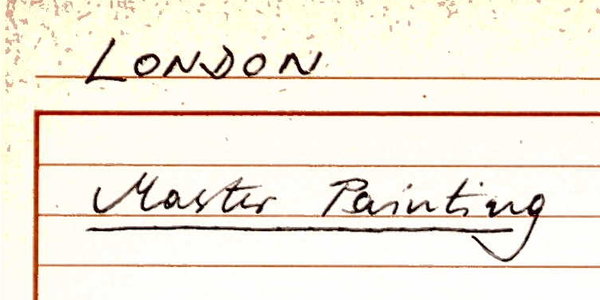 LONDON
Master Painting